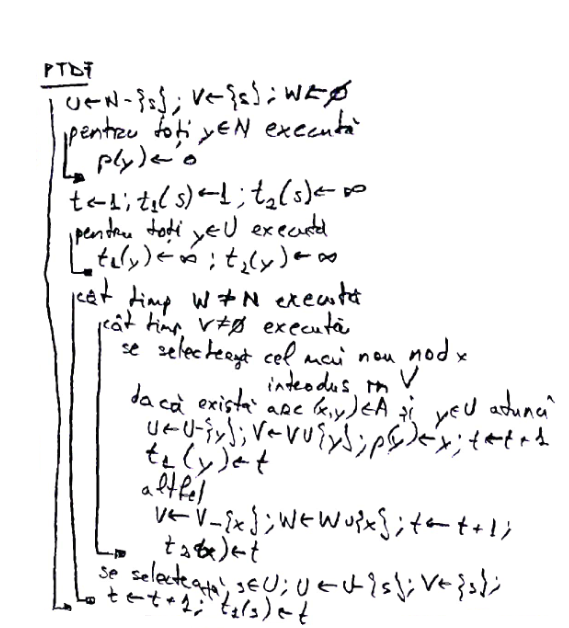 PTDF
U←N-{s}; V←{s}; W←∅
pentru toți y∈N execută
p(y)←0
t←1; t₁(s)←1; t₂(s)←∞
pentru toți y∈U execută
t₁(y)←∞; t₂(y)←∞
cât timp W≠N execută
cât timp V≠∅ execută
se selectează cel mai nou nod x
introdus în V
dacă există arc (x,y)∈A și y∈U atunci
U←U-{y}; V←V∪{y}; p(y)←x; t←t+1
t₁(y)←t
altfel
V←V-{x}; W←W∪{x}; t←t+1;
t₂(x)←t
se selectează s∈U; U←U-{s}; V←{s};
t←t+1; t₁(s)←t